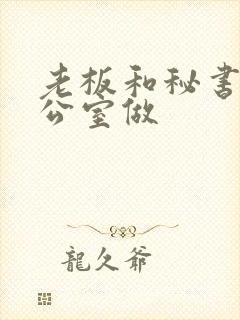 老板和秘书
公室做
龍久爷